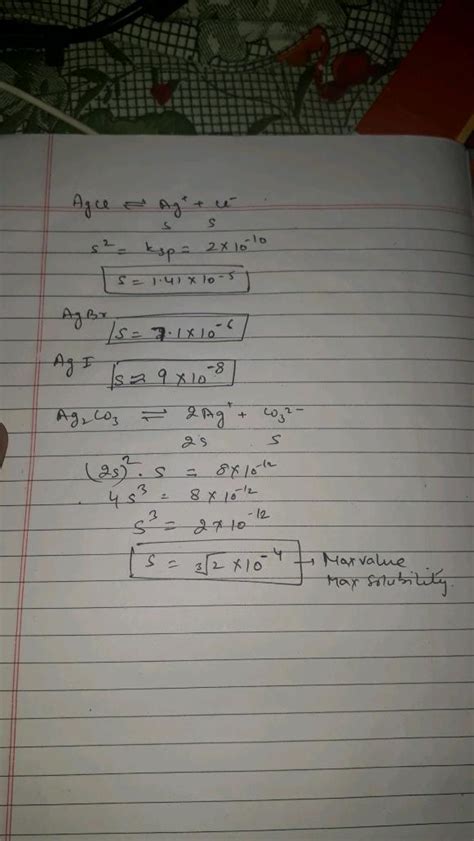 AgCl ⇌ Ag⁺ + Cl⁻
s s
s² = ksp = 2×10⁻¹⁰
s = 1.41 × 10⁻⁵
AgBr s = 7.1×10⁻⁶
AgI s = 9 ×10⁻⁸
Ag₂CO₃ ⇌ 2Ag⁺ + CO₃²⁻
2s s
(2s)² . s = 8×10⁻¹²
4s³ = 8×10⁻¹²
s³ = 2×10⁻¹²
s = ³√2 ×10⁻⁴ → Max value
Max solubility.